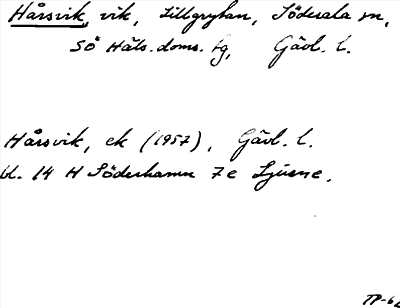 Hårsvik, vik, Lillgrykan, Söderala sn,
Sö Häls. doms. tg, Gävl. l.
Hårsvik, ek (1957), Gävl. l.
bl. 14 H Söderhamn 7e Ljusne.
TP-62